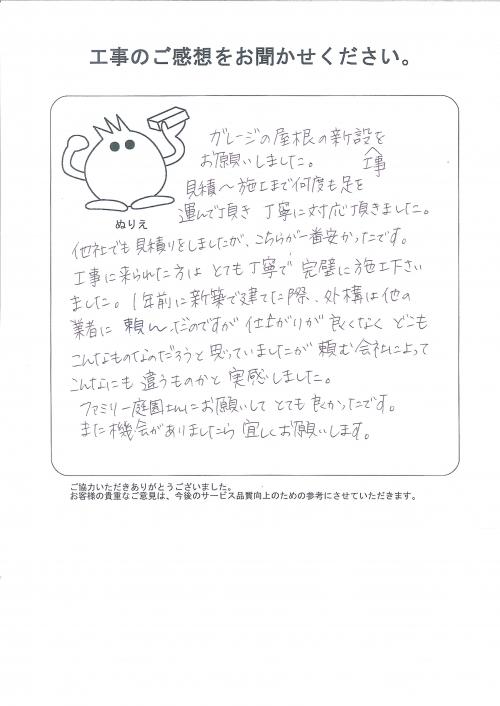 工事のご感想をお聞かせください。
ガレージの屋根の新設工事を
お願いしました。
見積〜施工まで何度も足を
運んで頂き 丁寧に対応頂きました。
ぬりえ
他社でも見積りをしましたが、こちらが一番安かったです。
工事に来られた方は とても丁寧で 完璧に施工下さい
ました。1年前に新築で建てた際、外構は他の
業者に 頼んだのですが 仕上がりが 良くなく どこも
こんなものなのだろうと思っていましたが 頼む会社によって
こんなにも 違うものかと 実感しました。
ファミリー庭園さんにお願いして とても 良かったです。
また機会がありましたら 宜しくお願いします。
ご協力いただきありがとうございました。
お客様の貴重なご意見は、今後のサービス品質向上のための参考にさせていただきます。